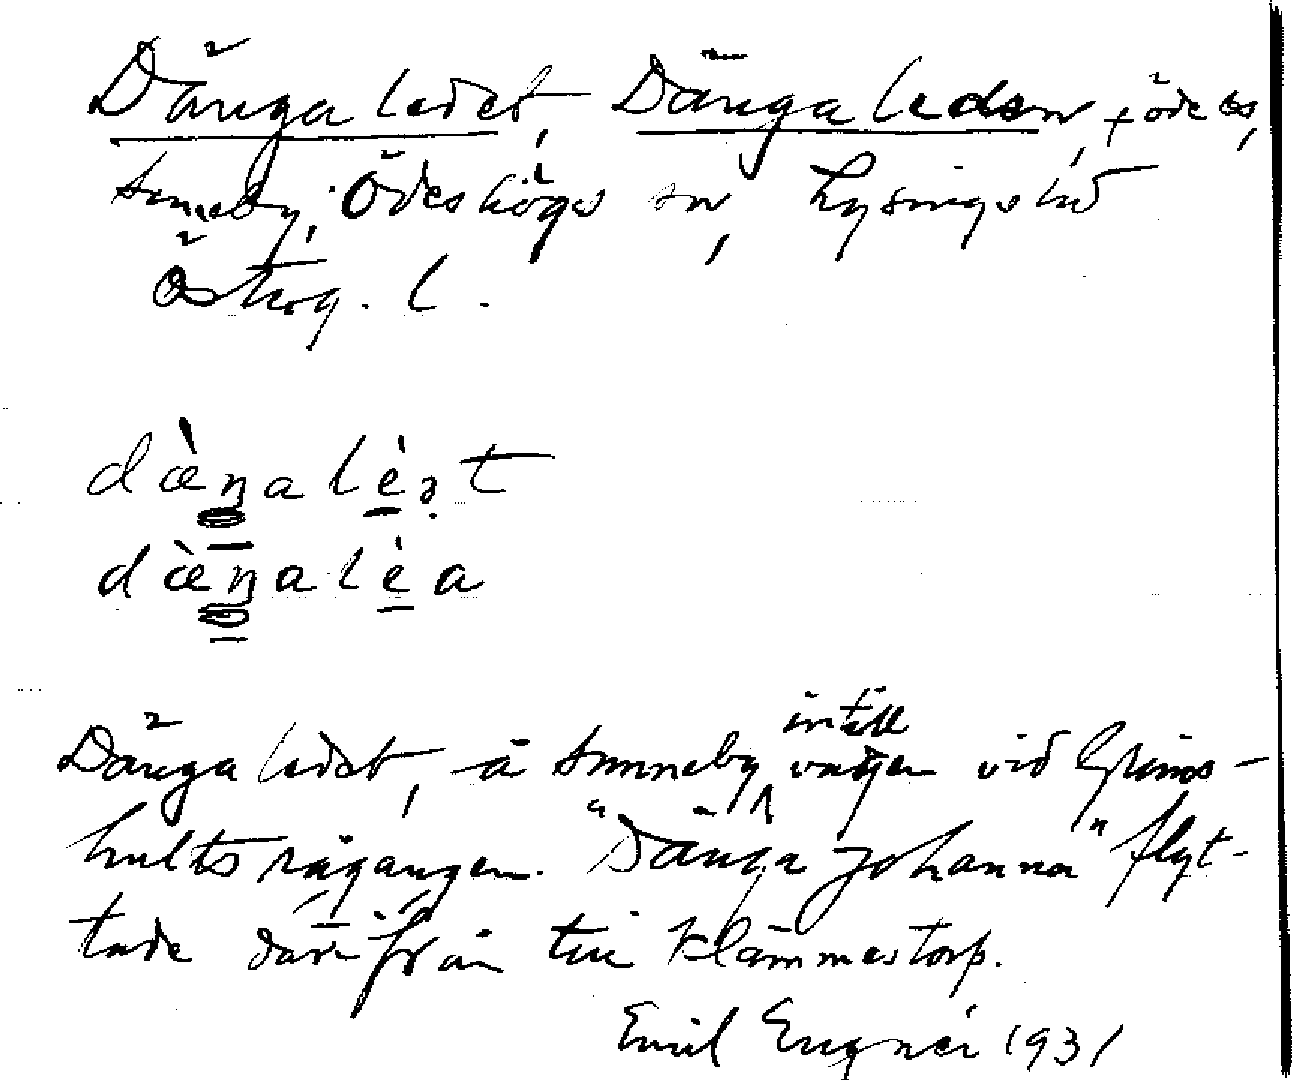 Dängaledet, Dängaleden, † ödelagt,
Sunneby, Ödeshögs sn, Lysings hd
Östrog. l.
dæ̀ŋalèət
dæ̀ŋalèa
Dängaledet, å Sunneby intill vägen vid Grims-
hults rågången. "Dänga Johanna" flyt-
tade därifrån till Klämmestorp.
Emil Engnér 1931